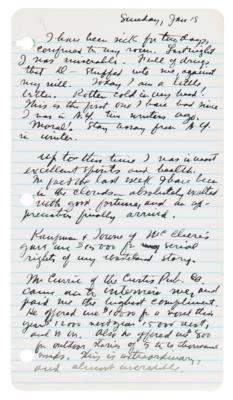 Sunday, Jan 18
I have been sick for ten days,
confined to my room. Last night
I was miserable. Full of drugs
that Dr — stuffed into me, against
my will. Today I am a little
better. Rotten cold in my head!
This is the first one I have had since
I was in N.Y. two winters ago.
Moral: Stay away from N.Y.
in winter.
Up to this time I was in most
excellent spirits and health.
In fact the last week I have been
in the clouds — absolutely exalted
with good fortune, and an ap-
preciation finally arrived.
Kaufman & Towne of McClure's
gave me $25000 for my serial
rights of my wasteland story.
Mr Currie of the Curtis Pub. Co.
came out to interview me, and
paid me the highest compliment.
He offered me $10000 for a novel this
year 12000 next year 15000 next,
and so on. Also he offered out 800
for outdoor stories of 5 to 6 thousand
words. This is extraordinary,
and almost incredible.